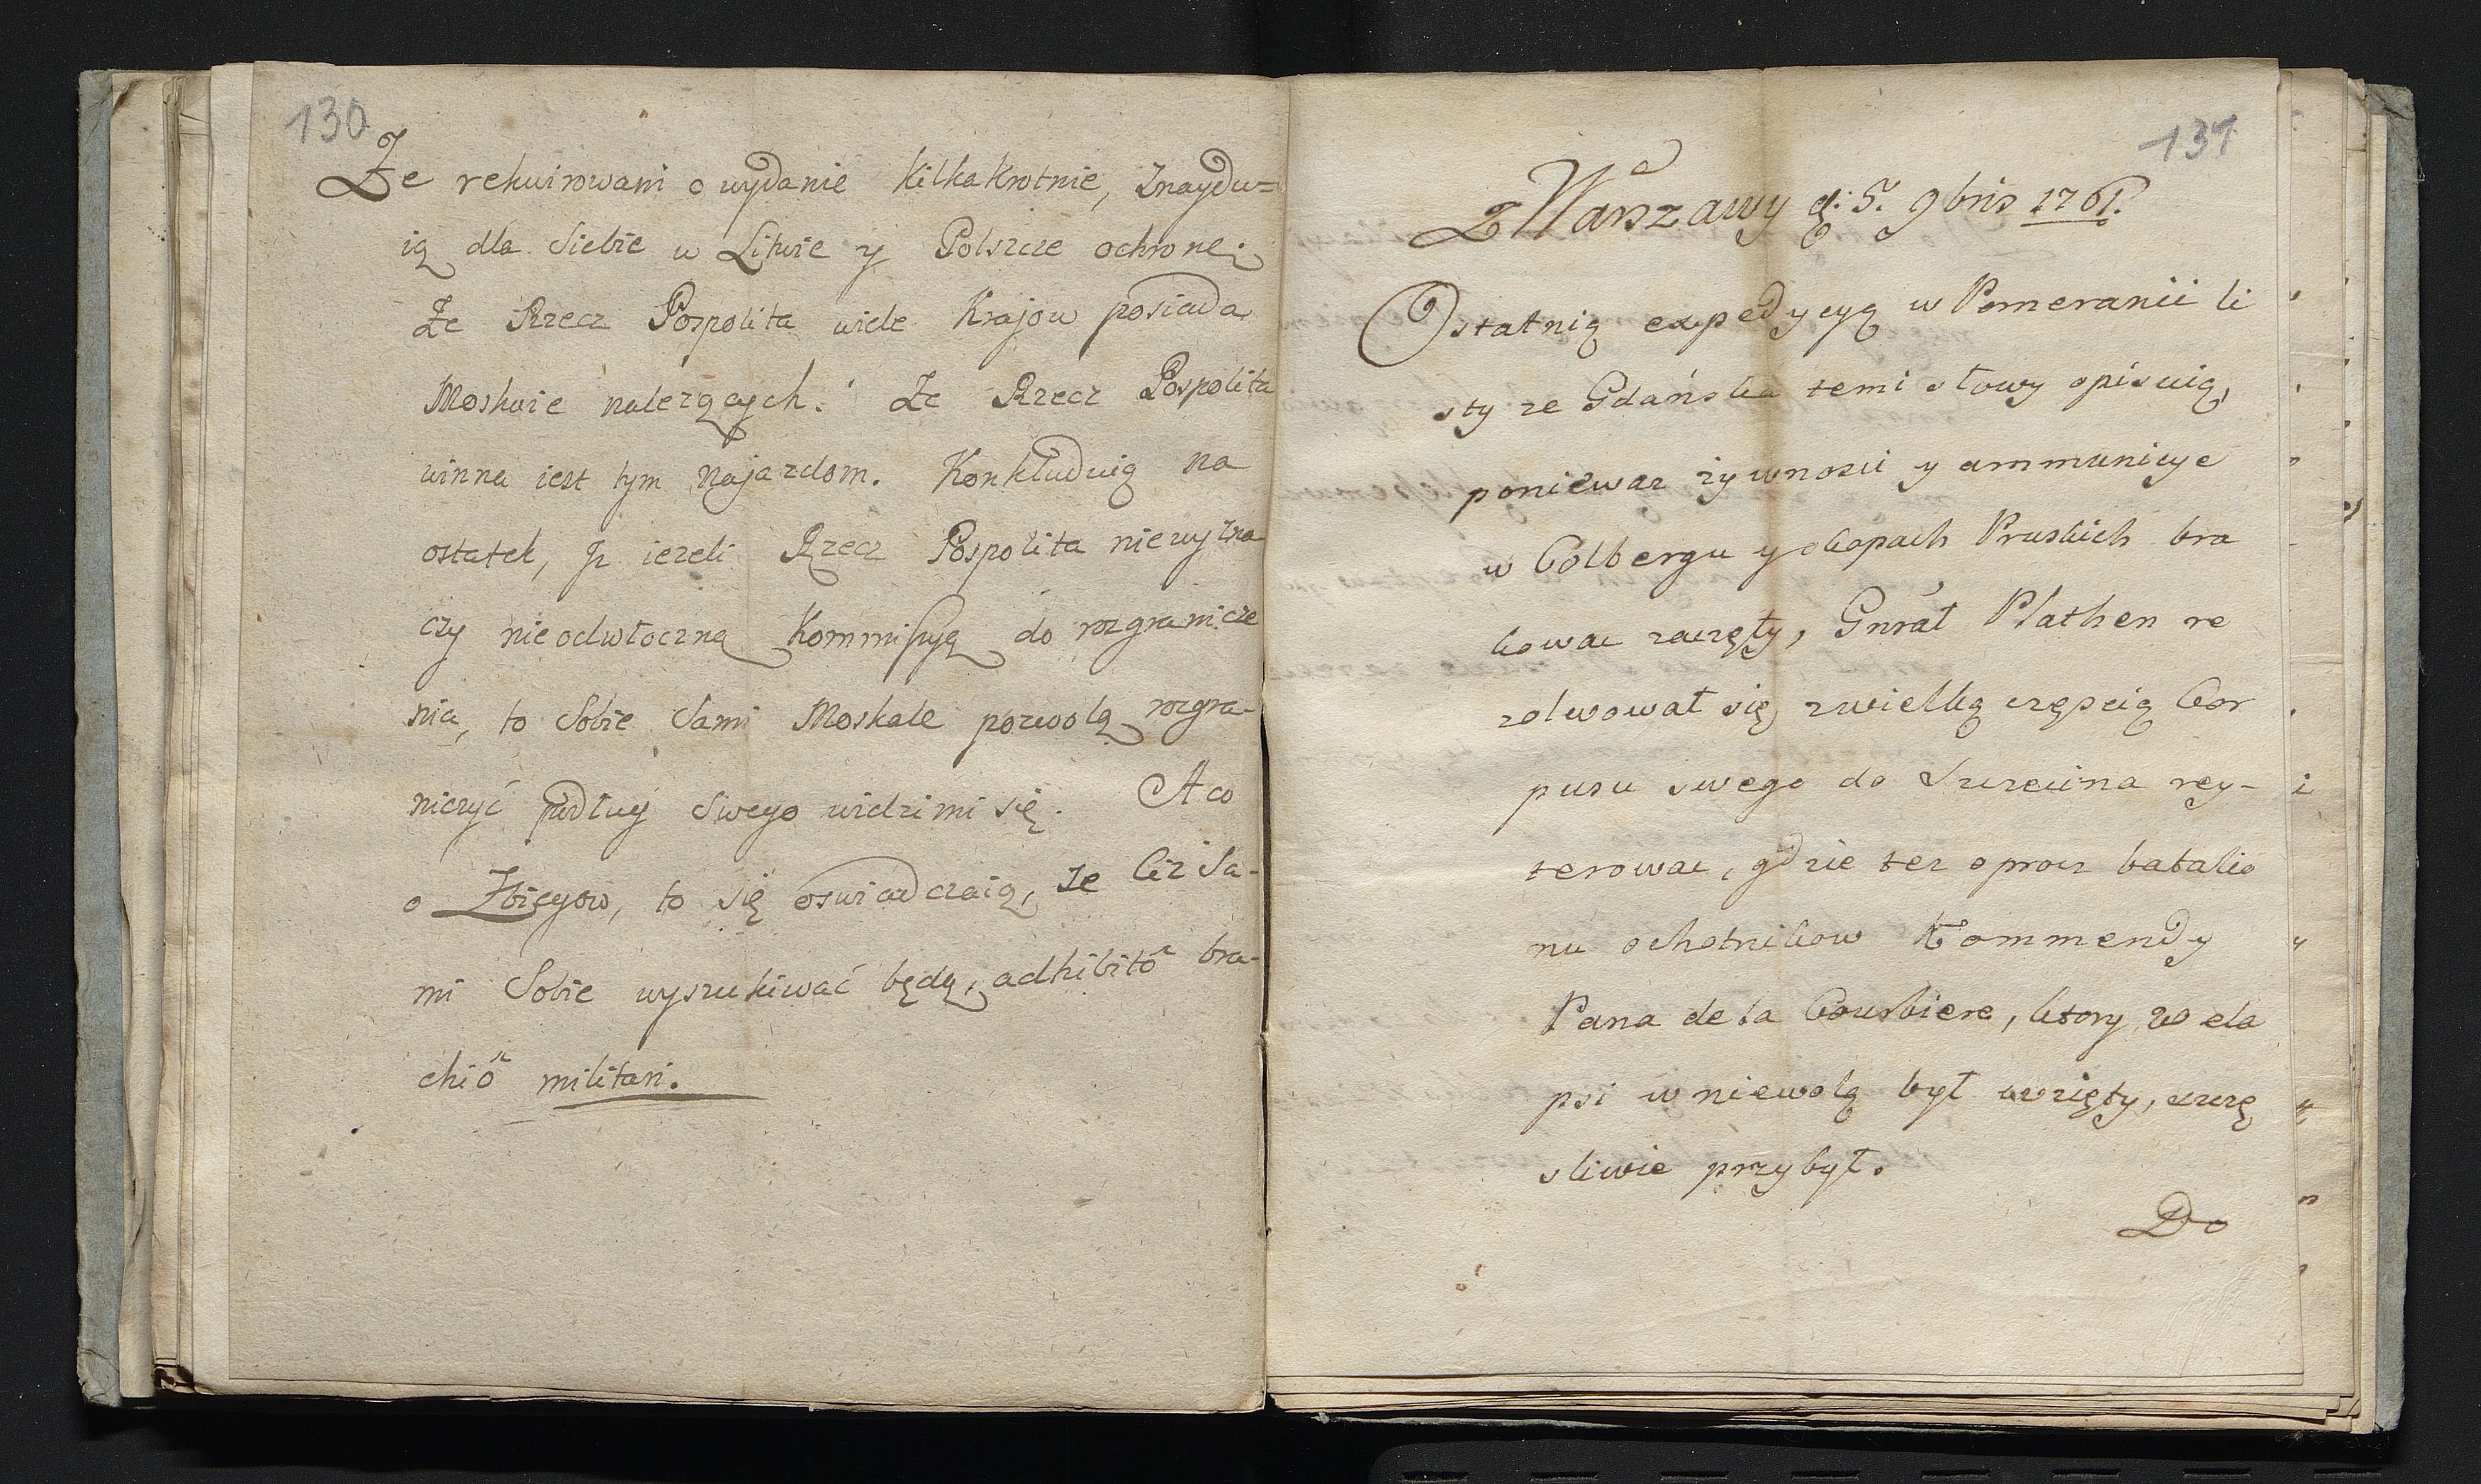 130
Że rekwirowani o wydanie kilkakrotnie, znaydu=
ią dla siebie w Litwie y Polszcze ochronę;
Że Rzecz Pospolita wiele Krajow posiada
Moskwie nalezących: Że Rzecz Pospolita
winna iest tym najazdom. Konkluduią na
ostatek, Jz iezeli Rzecz Pospolita niewyzna
czy nieodwłoczną Kommissyą do rozgranicze
nia, to Sobie Sami Moskale pozwolą rozgra-
niczyć podług Swego widzimi się. A co
o Zbiegow, to się oswiadczaią, ze Ciz Sa-
mi Sobie wyszukiwać będą, adhibitô bra-
chiô militari.
131
Z Warszawy d: 5. 9bris 1761.
Ostatnią expedycyą w Pomeranii li
sty ze Gdańska temi słowy opisuią,
poniewaz zywnosci y ammunicye
w Colbergu y okopach Pruskich bra
kowac zaczęły, Gnrał Plathen re
zolwował się z wielką częscią Cor
pusu swego do Szczecina rey-
terowac, gdzie tez oprocz batalio
nu ochotnikow Kommendy
Pana de la Courbiere, ktory zo ela
psi w niewolą był wzięty, szczę
sliwie przybył.
Do